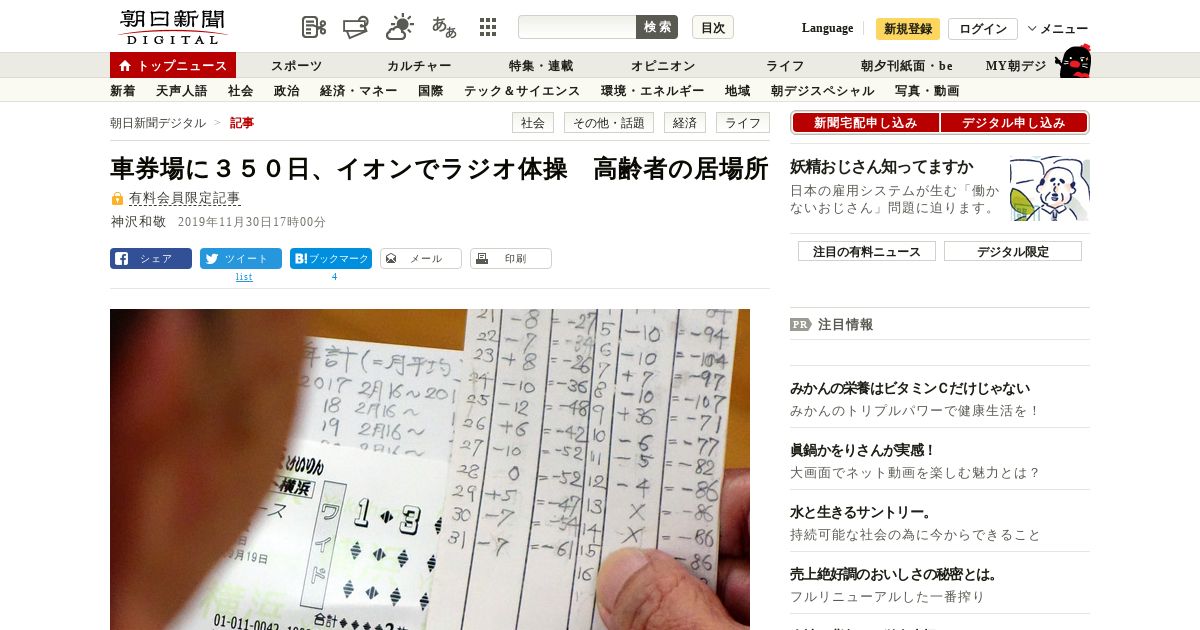 朝日新聞
DIGITAL
あぁ
検索
目次
Language
新規登録
ログイン
メニュー
トップニュース
スポーツ
カルチャー
特集・連載
オピニオン
ライフ
朝夕刊紙面・be
MY朝デジ
新着
天声人語
社会
政治
経済・マネー
国際
テック＆サイエンス
環境・エネルギー
地域
朝デジスペシャル
写真・動画
朝日新聞デジタル > 記事
社会
その他・話題
経済
ライフ
車券場に３５０日、イオンでラジオ体操　高齢者の居場所
有料会員限定記事
神沢和敬 2019年11月30日17時00分
シェア
ツイート
ブックマーク
メール
印刷
list
4
新聞宅配申し込み
デジタル申し込み
妖精おじさん知ってますか
日本の雇用システムが生む「働か
ないおじさん」問題に迫ります。
注目の有料ニュース
デジタル限定
PR 注目情報
みかんの栄養はビタミンＣだけじゃない
みかんのトリプルパワーで健康生活を！
眞鍋かをりさんが実感！
大画面でネット動画を楽しむ魅力とは？
水と生きるサントリー。
持続可能な社会の為に今からできること
売上絶好調のおいしさの秘密とは。
フルリニューアルした一番搾り
年計(=月平均)
2017 2月16～201
18 2月16～
19 2月16～
横浜
ワイド
1 3
月19日
横浜
合計
01-011-0042
22 -7
23 +8 =-26
24 -10 =-36
25 -12 =-48
26 +6 =-42
27 -10 =-52
28 0 =-52
29 +5 =-47
30 -7 =-54
31 -7 =-61
5 -10 =-94
6 -10 =-104
7 +7 =-97
8 -10 =-107
9 +36 =-71
10 -6 =-77
11 -5 =-82
12 -4 =-86
13 × =-86
14 × =-86
15 -86
16